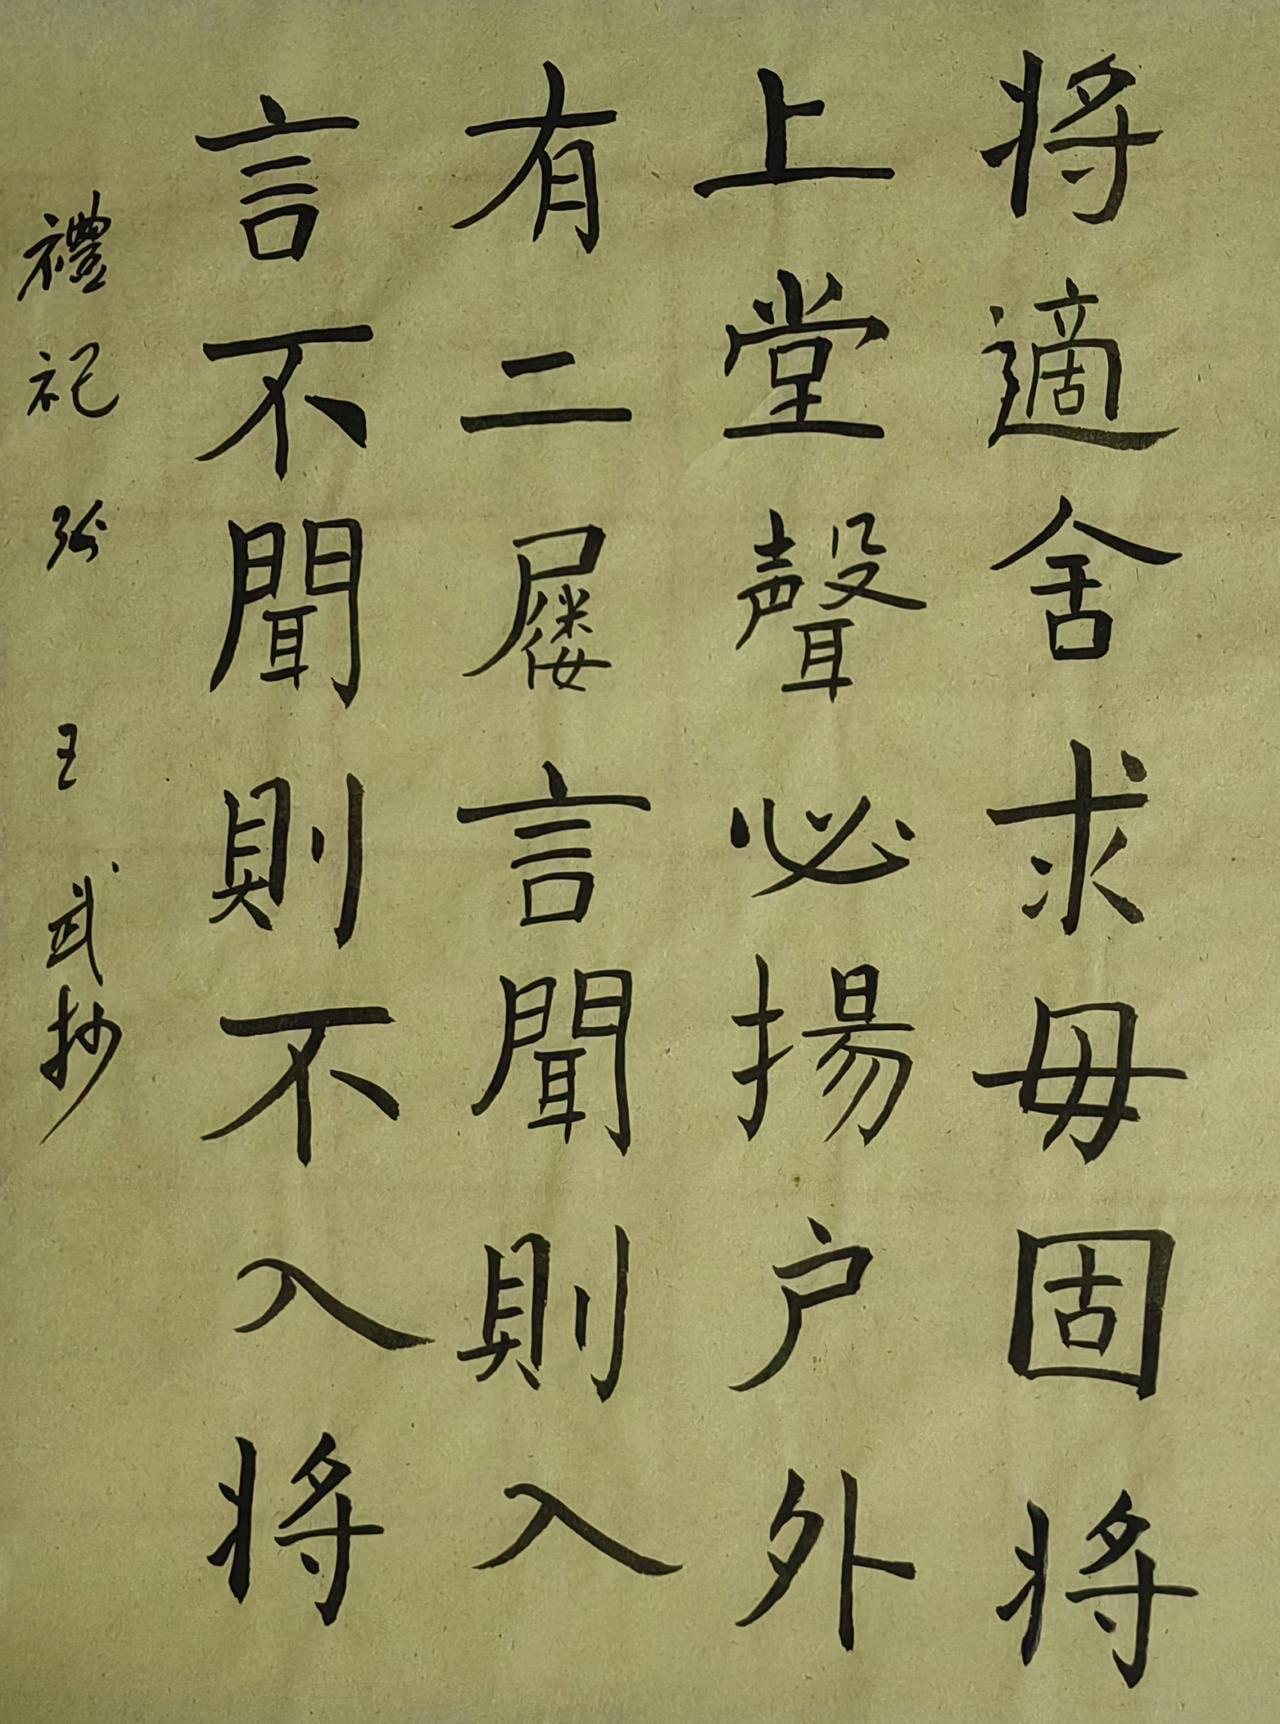 将適舍求毋固将
上堂聲必揚户外
有二屨言聞則入
言不聞則不入将
禮記 王武抄